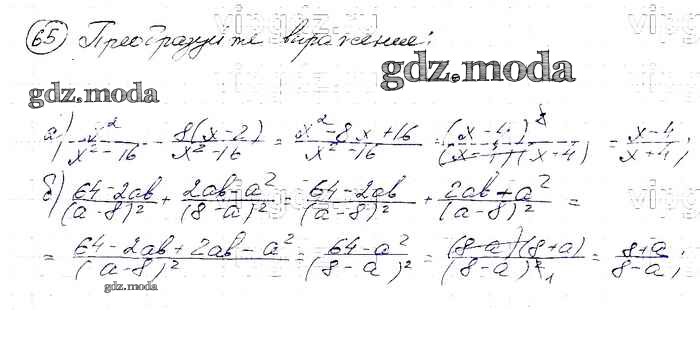 65 Преобразуйте выражение:
gdz.moda
gdz.moda
а) x²/(x²-16) - 8(x-2)/(x²-16) = (x²-8x+16)/(x²-16) = (x-4)²/((x-4)(x+4)) = (x-4)/(x+4);
б) (64-2ab)/(a-8)² + (2ab-a²)/(8-a)² = (64-2ab)/(a-8)² + (2ab+a²)/(a-8)² =
= (64-2ab+2ab-a²)/(a-8)² = (64-a²)/(8-a)² = (8-a)(8+a)/(8-a)²₁ = (8+a)/(8-a);
gdz.moda